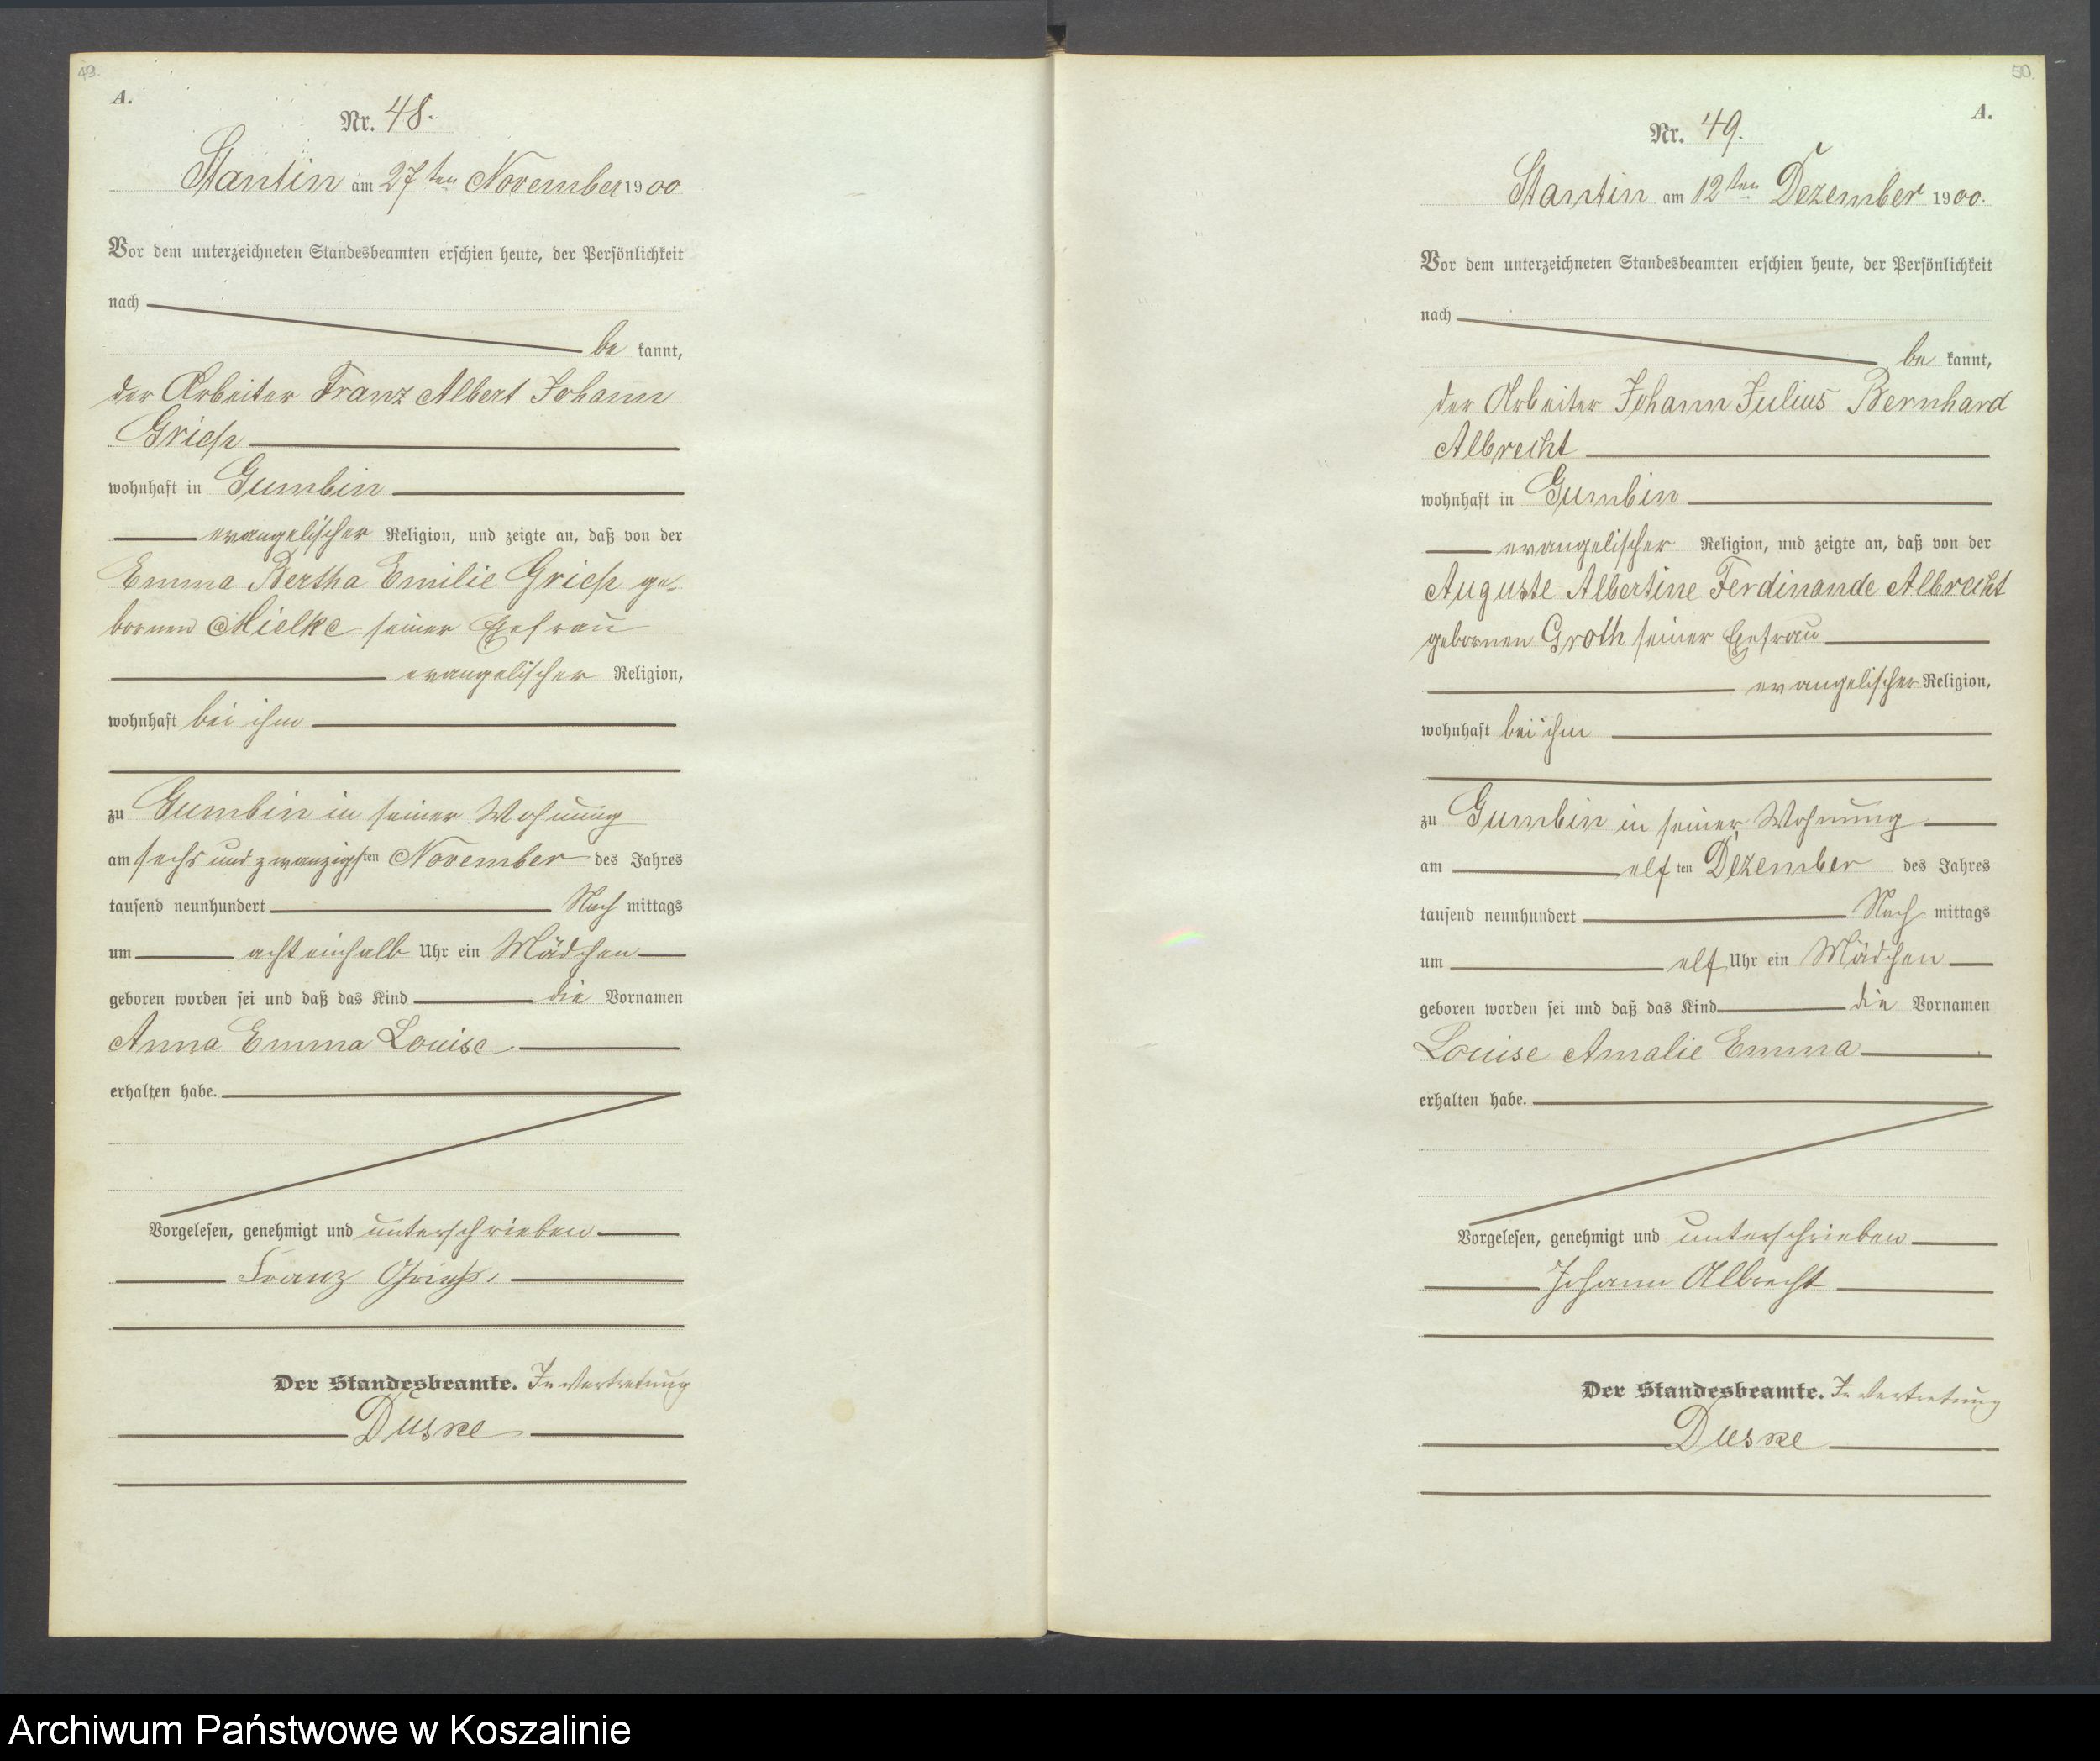 49.
A.
Nr. 48.
Stantin am 27ten November 1900
Vor dem unterzeichneten Standesbeamten erschien heute, der Persönlichkeit
nach
be kannt,
der Arbeiter Franz Albert Johann
Grieß
wohnhaft in Gumbin
evangelischer Religion, und zeigte an, daß von der
Emma Bertha Emilie Grieß ge-
bornen Mielke seiner Ehefrau
evangelischer Religion,
wohnhaft bei ihm
zu Gumbin in seiner Wohnung
am sechs und zwanzigsten November des Jahres
tausend neunhundert Nach mittags
um acht einhalb Uhr ein Mädchen
geboren worden sei und daß das Kind die Vornamen
Anna Emma Louise
erhalten habe.
Vorgelesen, genehmigt und unterschrieben
Franz Grieß.
Der Standesbeamte. In Vertretung
Duske
50.
A.
Nr. 49.
Stantin am 12ten Dezember 1900.
Vor dem unterzeichneten Standesbeamten erschien heute, der Persönlichkeit
nach
be kannt,
der Arbeiter Johann Julius Bernhard
Albrecht
wohnhaft in Gumbin
evangelischer Religion, und zeigte an, daß von der
Auguste Albertine Ferdinande Albrecht
gebornen Groth seiner Ehefrau
evangelischer Religion,
wohnhaft bei ihm
zu Gumbin in seiner Wohnung
am elf ten Dezember des Jahres
tausend neunhundert Nach mittags
um elf Uhr ein Mädchen
geboren worden sei und daß das Kind die Vornamen
Louise Amalie Emma
erhalten habe.
Vorgelesen, genehmigt und unterschrieben
Johann Albrecht
Der Standesbeamte. In Vertretung
Duske
Archiwum Państwowe w Koszalinie